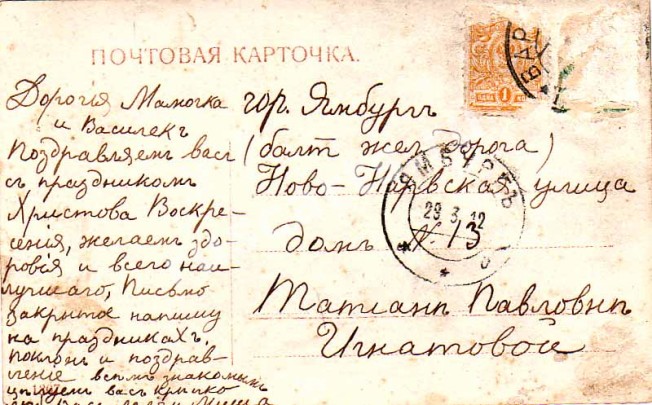 ПОЧТОВАЯ КАРТОЧКА.
Дорогія Мамочка
и Василекъ
Поздравляем васъ
съ праздником
Христова Воскре-
сенія, желаем здо-
ровія и всего наи-
лучшаго, Письмо
закрытое напишу
на праздникахъ.
поклонъ и поздрав-
ление всѣмъ знакомымъ
цѣлуем васъ крѣпко
гор. Ямбургъ
(балт жел. дорога)
Ново-Нарвская улица
домъ № 13
Татіанѣ Павловнѣ
Игнатовой
ЯМБУРГЪ
29 3 12
ВАР
1